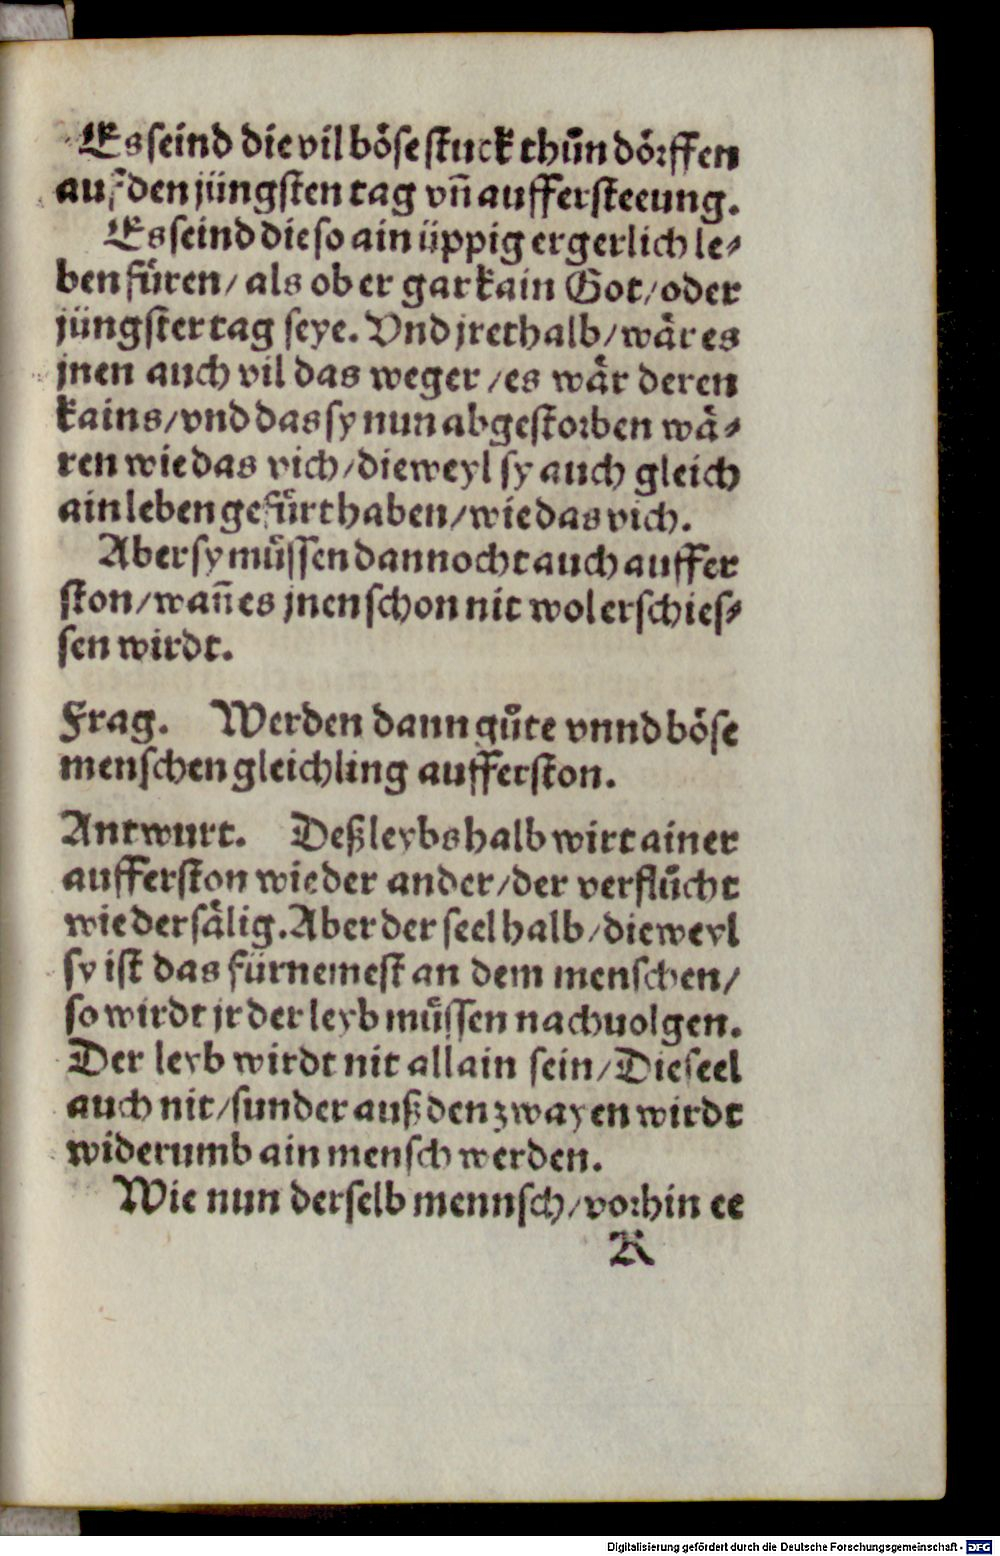 Es seind die vil böse stuck thůn dörffen
auf den jüngsten tag vñ aufferſteeung.
Es seind die so ain üppig ergerlich le⸗
ben fůren/ als ob er gar kain Got/ oder
jüngster tag seye. Vnd jrethalb/ wår es
jnen auch vil das weger/ es wår deren
kains/ vnd das sy nun abgestorben wå⸗
ren wie das vich/ dieweyl sy auch gleich
ain leben gefůrt haben/ wie das vich.
Aber sy můssen dannocht auch auffer
ston/ wañ es jnen schon nit wol erschies⸗
sen wirdt.
Frag. Werden dann gůte vnnd böse
menschen gleichling aufferston.
Antwurt. Deß leybs halb wirt ainer
aufferston wie der ander/ der verflůcht
wie der sålig. Aber der seel halb/ dieweyl
sy ist das fürnemest an dem menschen/
so wirdt jr der leyb můssen nachuolgen.
Der leyb wirdt nit allain sein/ Die seel
auch nit/ sunder auß den zwayen wirdt
widerumb ain mensch werden.
Wie nun derselb mennsch/ vorhin ee
K
Digitalisierung gefördert durch die Deutsche Forschungsgemeinschaft - DFG